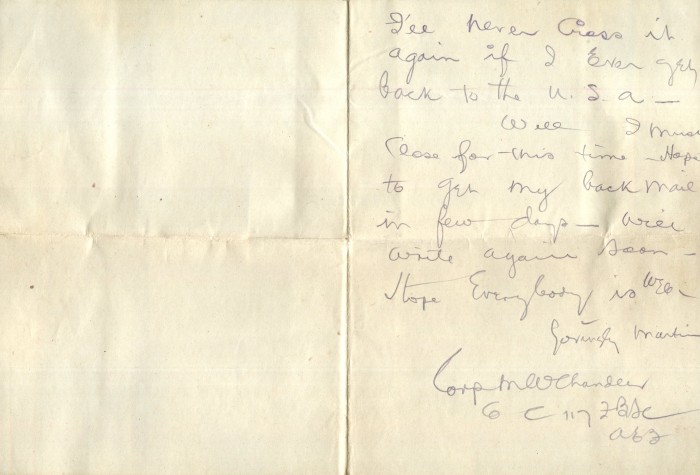 I'll never Cross it
again if I Ever get
back to the U.S.A —
Well I must
Close for this time – Hope
to get my back mail
in few days — Will
write again soon –
Hope Everybody is Well –
Lovingly Martin
Corp M W Chandler
C 117 F.B.S.C
AEF